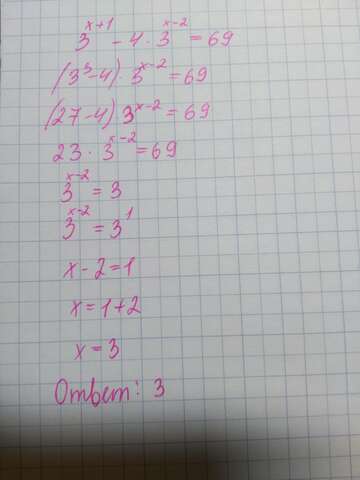 3^{x+1} - 4 · 3^{x-2} = 69
(3^3 - 4) · 3^{x-2} = 69
(27 - 4) · 3^{x-2} = 69
23 · 3^{x-2} = 69
3^{x-2} = 3
3^{x-2} = 3^1
x - 2 = 1
x = 1 + 2
x = 3
Ответ: 3